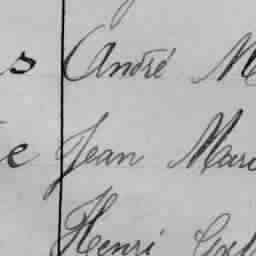 s André M
e Jean Marc
Henri